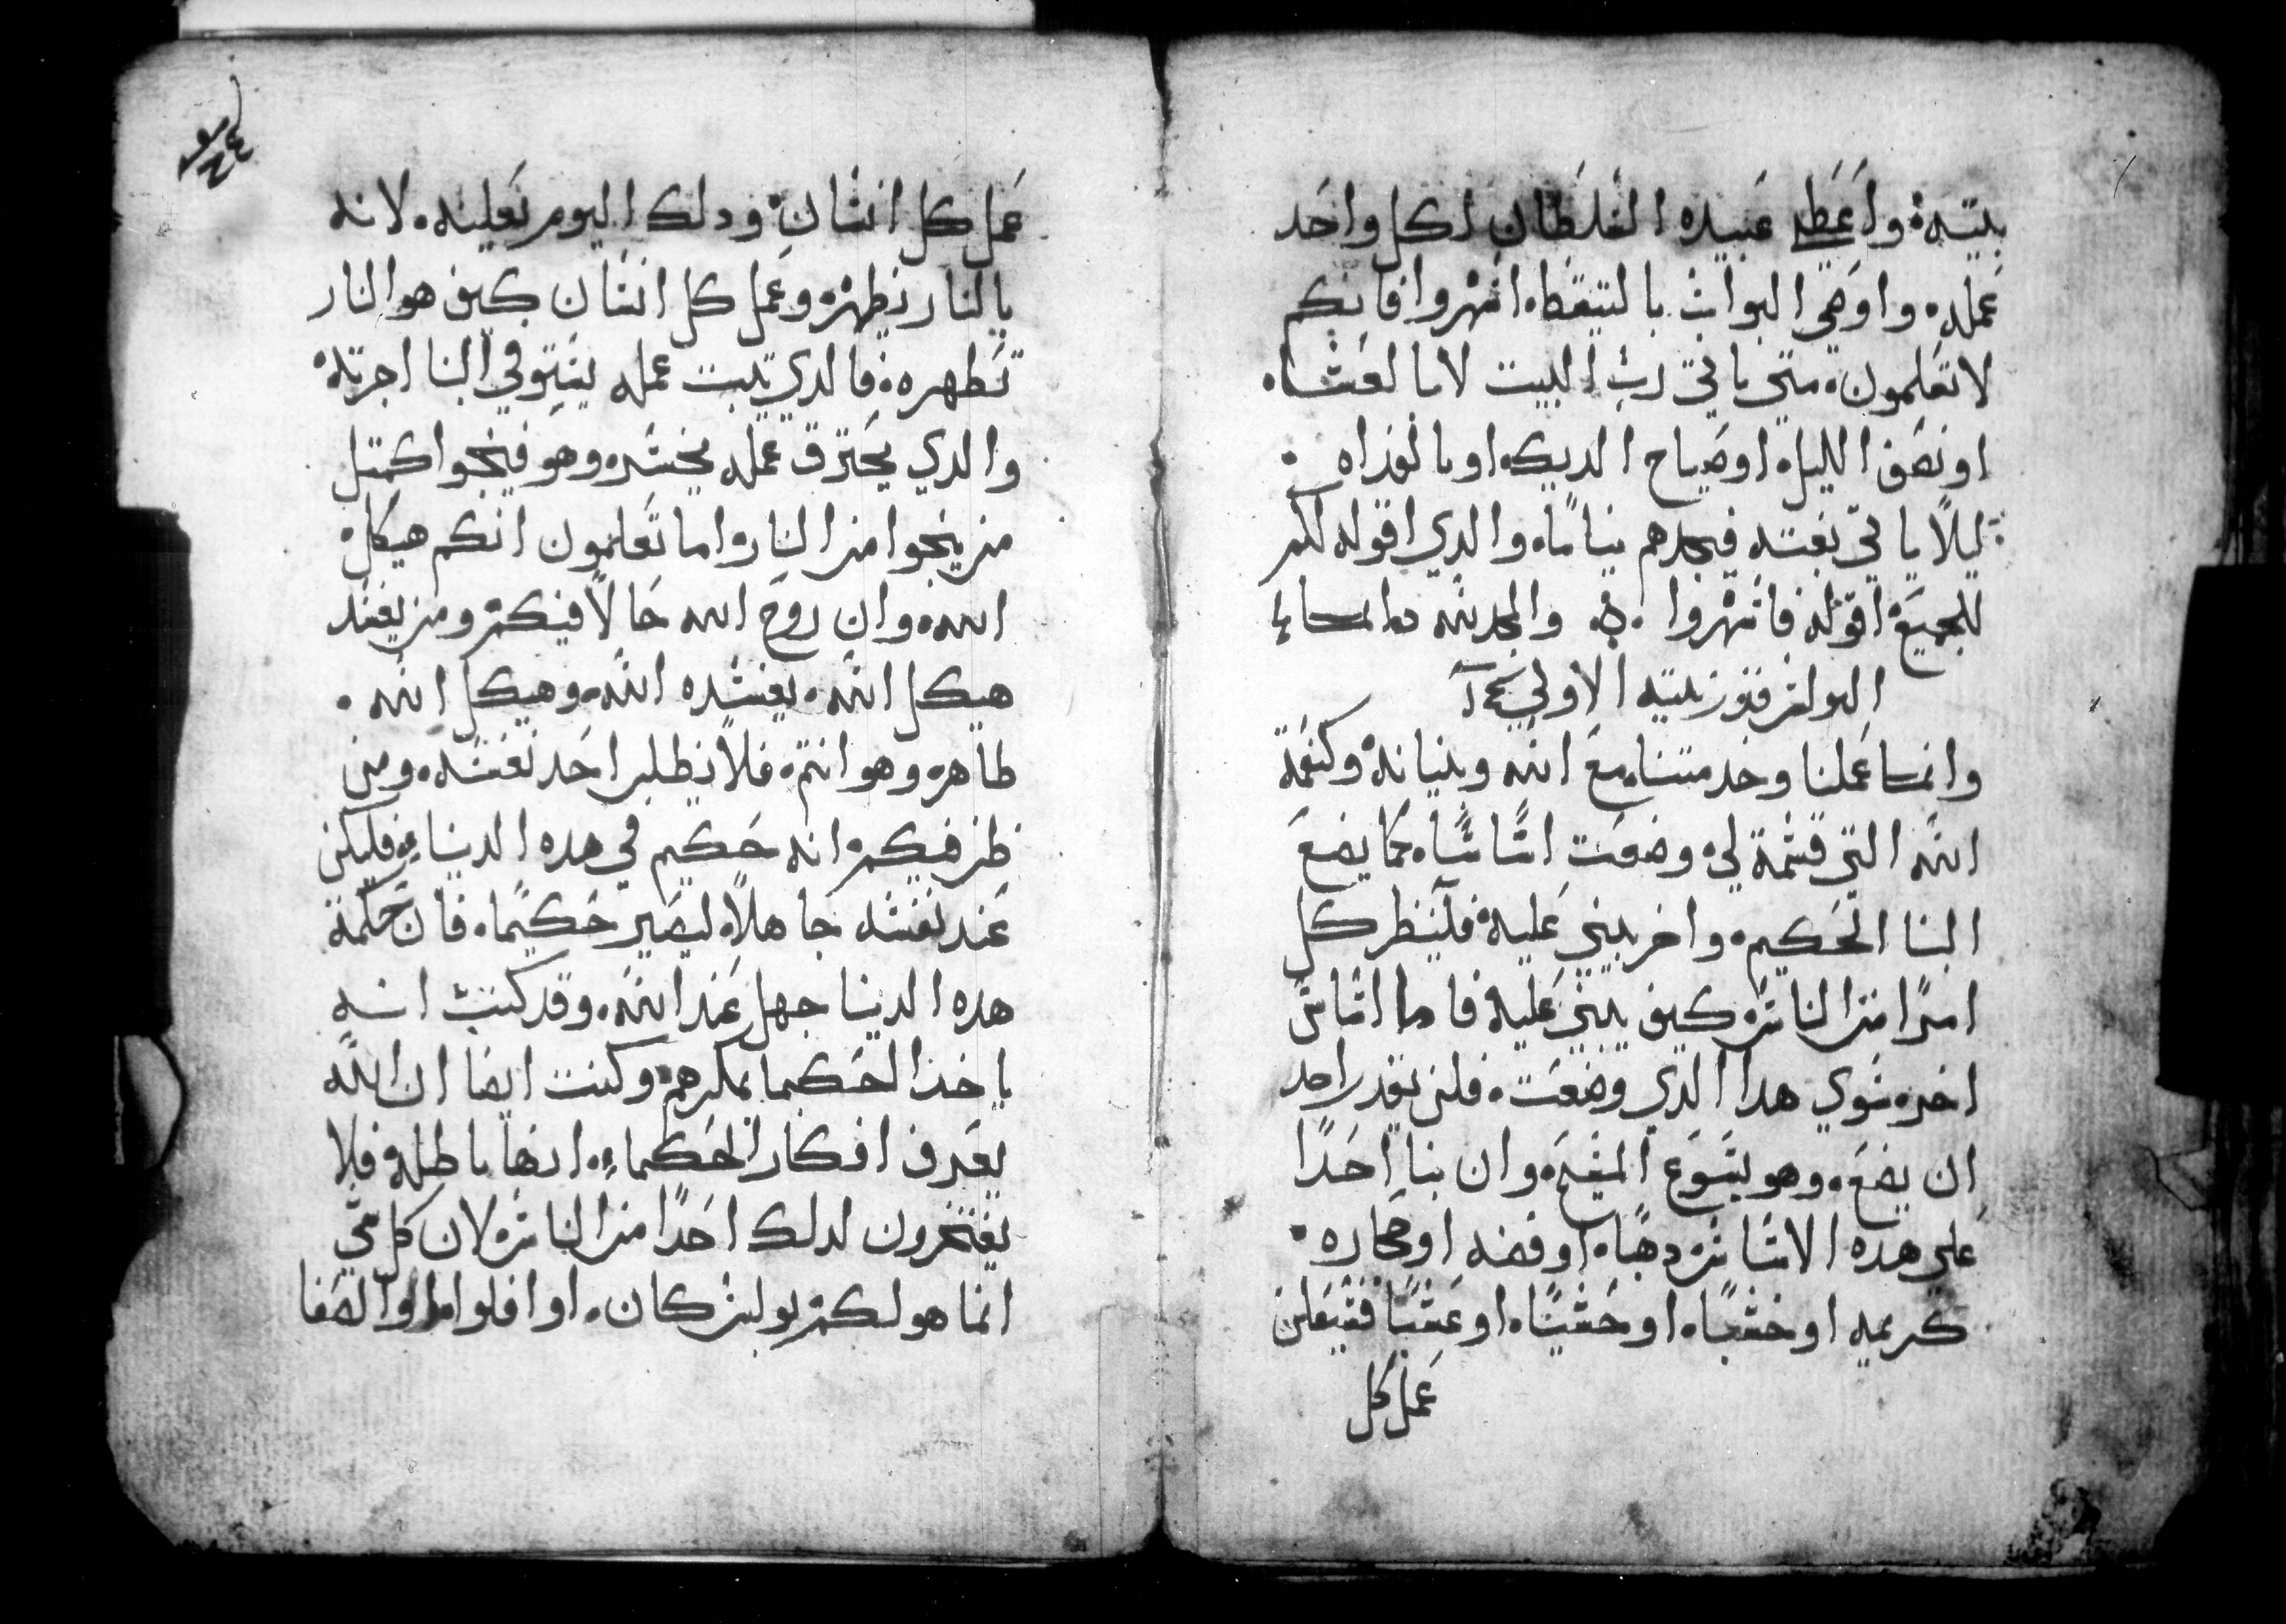 بيته، واعطي عبيده السلطان لكل واحد
عمله، واوصي البواب بالتيقظ، اسهروا فانكم
لا تعلمون، متي ياتي رب البيت لا بالعشاء،
او نصف الليل، او صياح الديك، او بالغداه،
ليلاً ياتي بغته فيجدهم نياماً، والدي اقوله لكم
للجميع اقوله فاسهروا، والمجد لله دائما
البولس قورنتيه الاولي
وانما عملنا وخدمتنا، مع الله وبنيانه، وكنعمة
الله التي قسمة لي، وضعت اساساً، كما يضع
البنا الحكيم، واخر يبني عليه، فلينظر كل
امراً من الناس، كيف يبني عليه، فاما اساس
اخر، سوي هدا الدي وضعت، فلن يقدر احد
ان يضع، وهو يسوع المسيح، وان بنا احداً
علي هده الاساس، دهباً، او فضه، او حجاره،
كريمه، او خشباً، او حشيشاً، او عشباً، فسيعلن
عمل كل
٢٤
عمل كل انسان، ودلك اليوم يعلنه، لانه
بالنار يظهر، وعمل كل انسان كيف هو النار
تطهره، فالدي يثبت عمله يستوفي البنا اجرته،
والدي يحترق عمله يخسره، وهو فينجوا كمتل
من ينجوا من النار، اما تعلمون انكم هيكل،
الله، وان روح الله حالاً فيكم، ومن يفسد
هيكل الله، يفسده الله، وهيكل الله،
طاهر، وهو انتم، فلا يظلم احد نفسه، ومن
ظن فيكم، انه حكيم في هده الدنيا، فليكن
عند نفسه جاهلاً، ليصير حكيماً، فان حكمة
هده الدنيا جهل عند الله، وقد كتب انه
ياخد الحكما بمكرهم، وكتب ايضا ان الله
يعرف افكار الحكماء، انها باطله، فلا
يفتخرون لدلك احداً من الناس، لان كل شي
انما هو لكم، بولس كان، او افلوا او الصفا